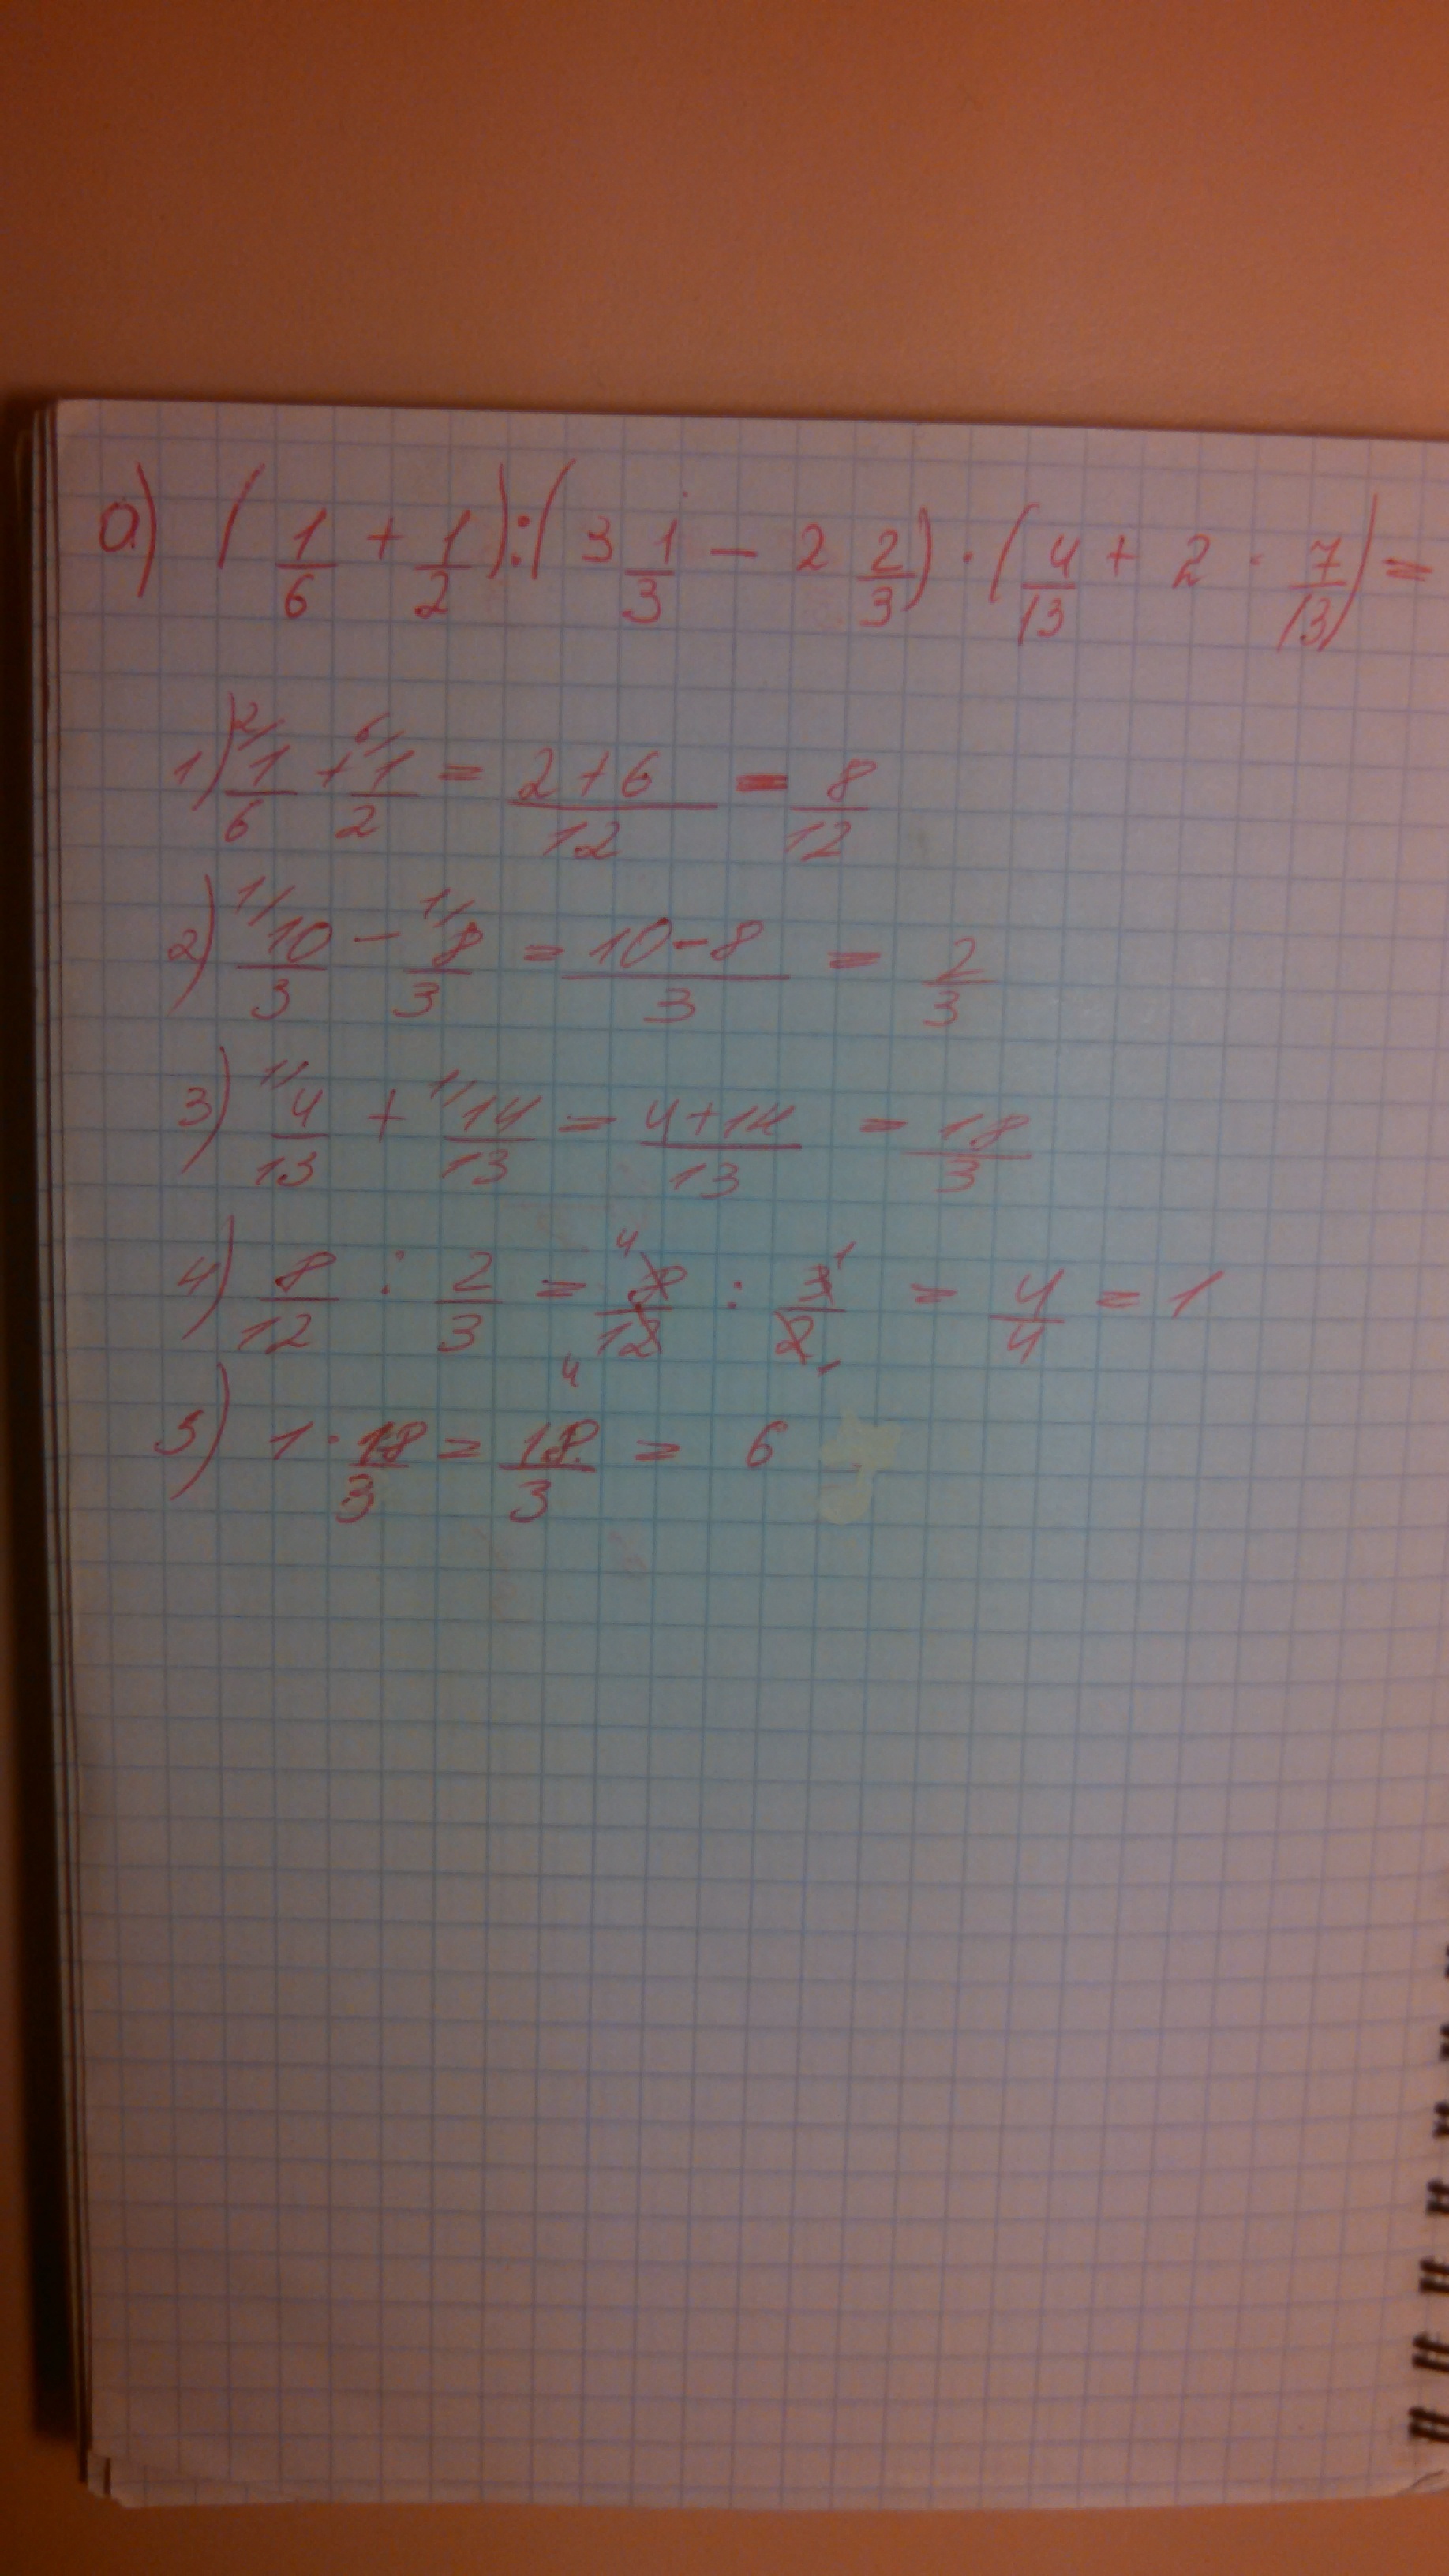 а) (1/6 + 1/2) : (3 1/3 − 2 2/3) · (4/13 + 2 · 7/13) =
1) 2/ 1/6 + 6/ 1/2 = (2+6)/12 = 8/12
2) 1/ 10/3 − 1/ 8/3 = (10−8)/3 = 2/3
3) 1/ 4/13 + 1/ 14/13 = (4+14)/13 = 18/3
4) 8/12 : 2/3 = 4 8/12 4 : 3 1/2 1 = 4/4 = 1
5) 1 · 18/3 = 18/3 = 6